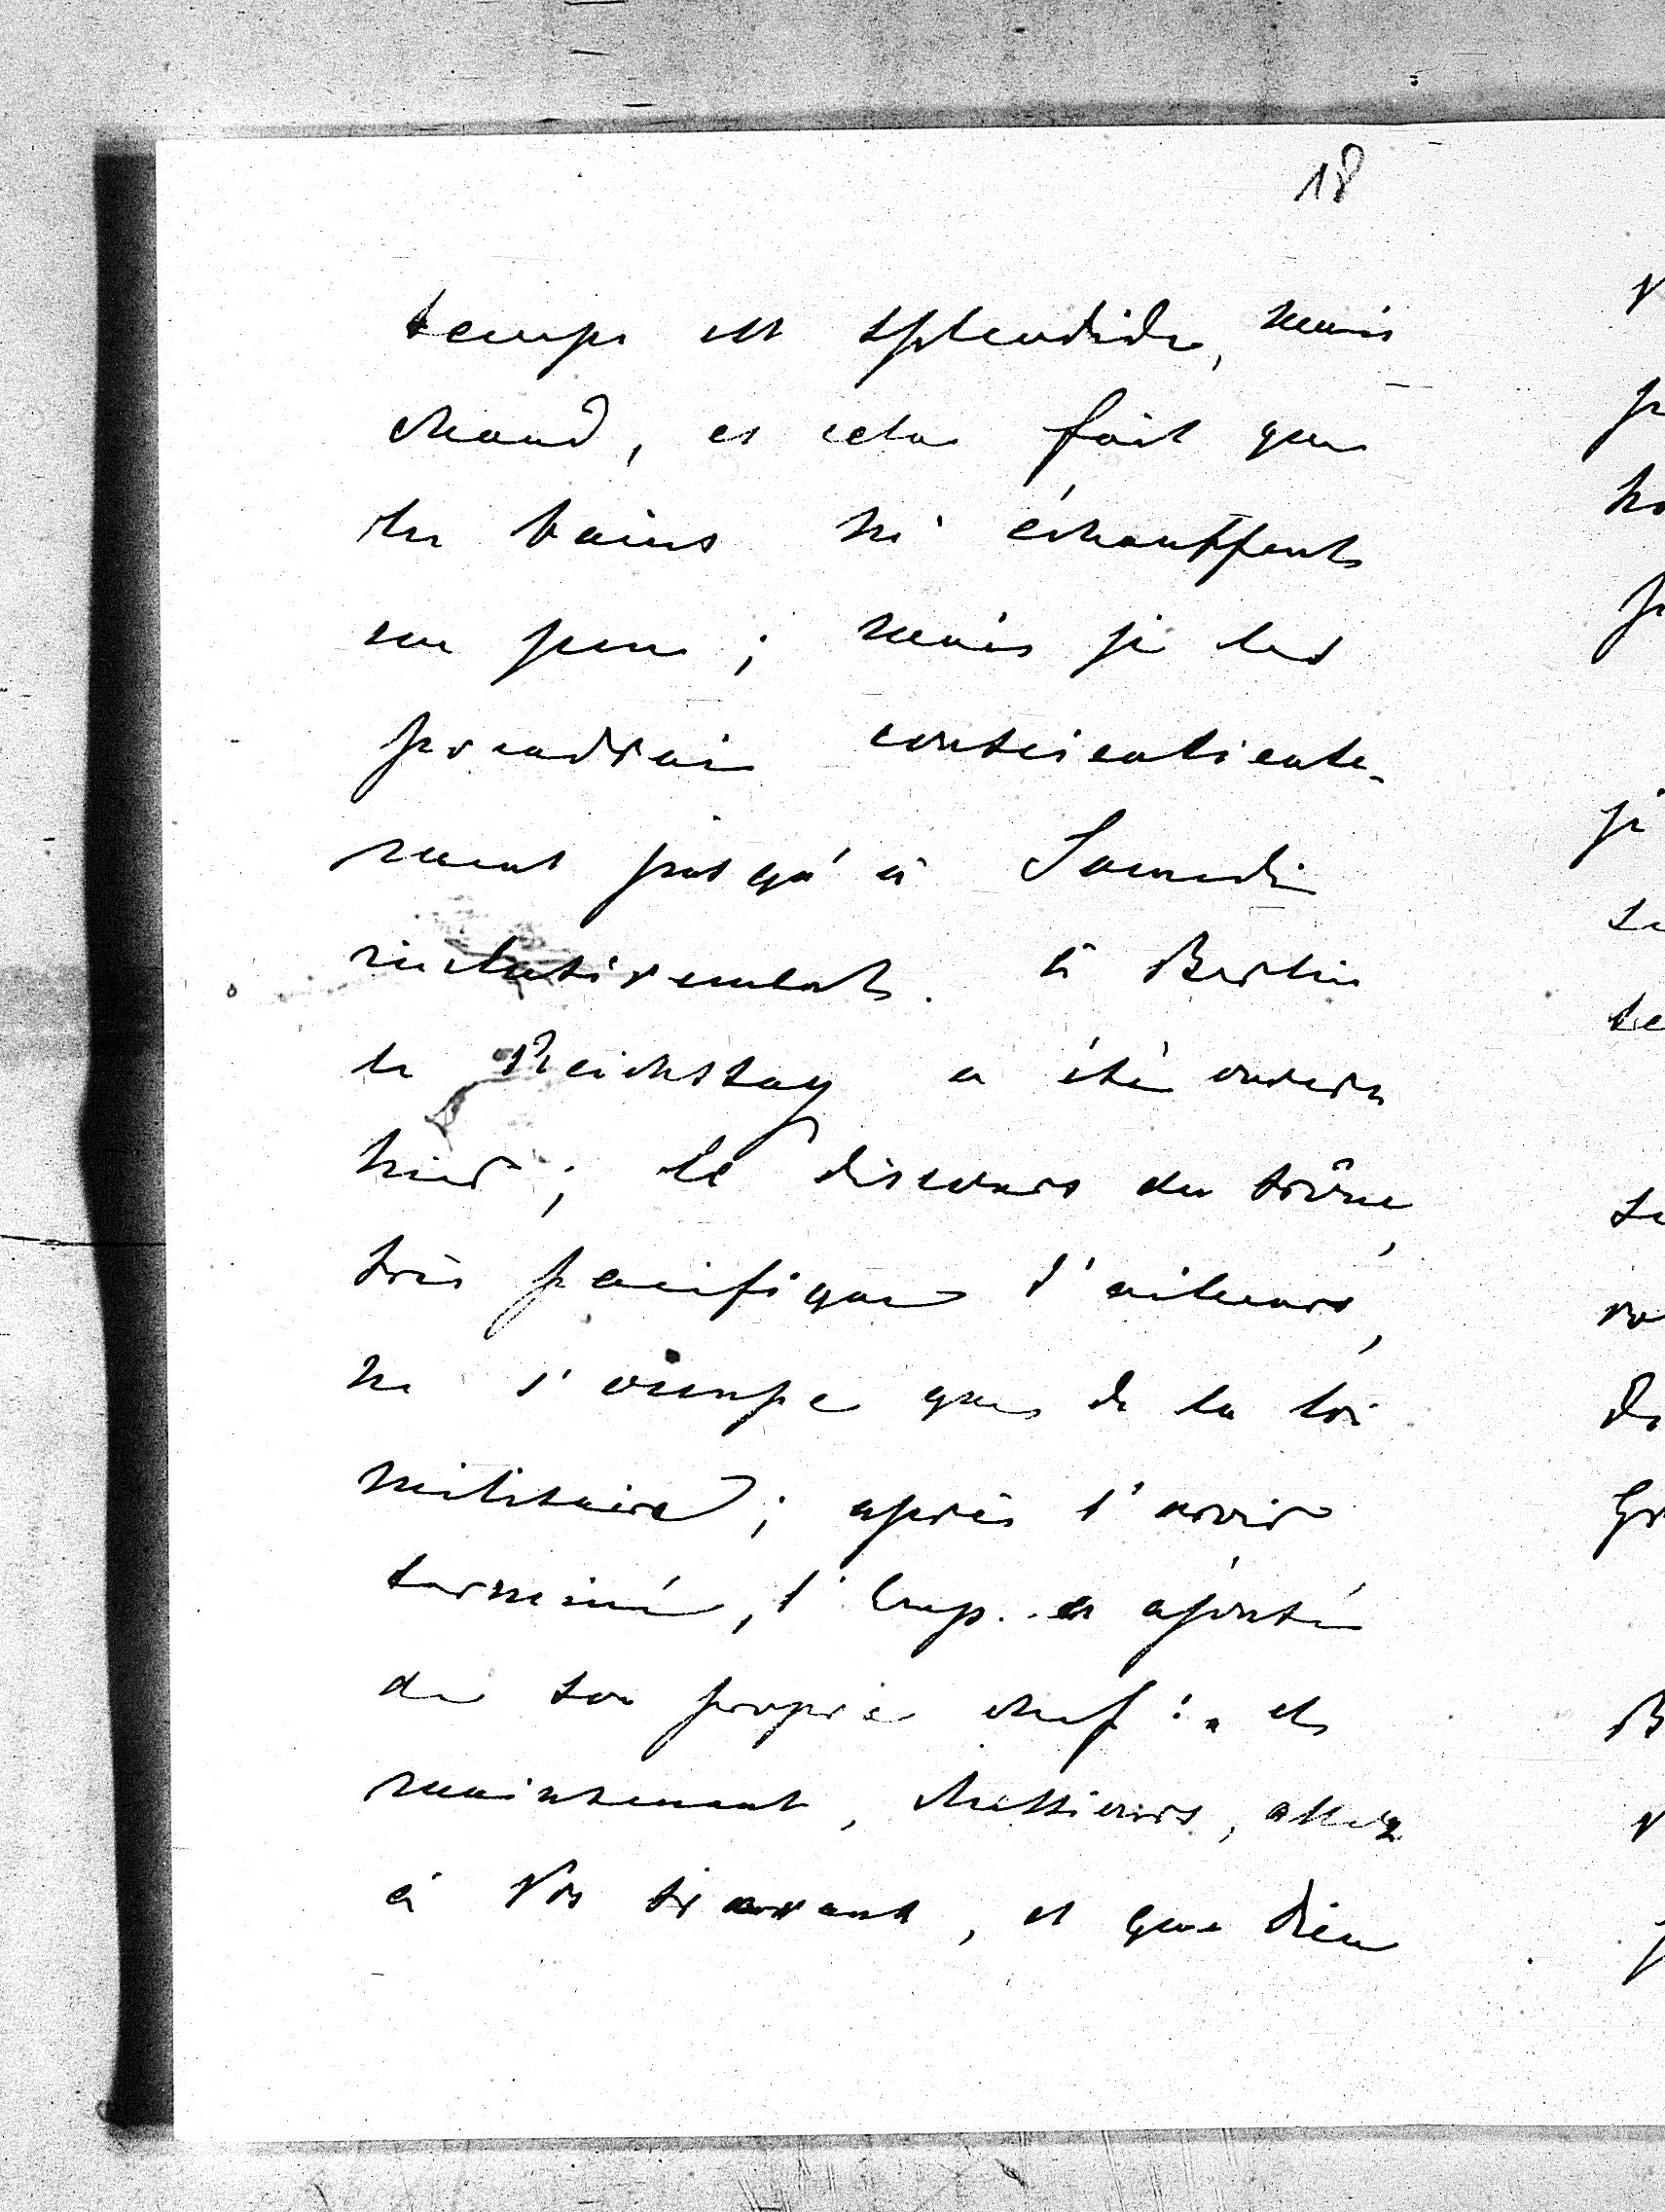 18
temps est splendide, mais
chaud, et cela fait que
les bains m'échauffent
un peu; mais je les
prendrai conscientieuse-
ment jusqu'à Samedi
inclusivement. à Berlin
le Reichstag a été ouvert
hier; le discours du trône,
très pacifique d'ailleurs,
ne s'occupe que de la loi
militaire; après l'avoir
terminé, l'Emp. a ajouté
de son propre chef: „ et
maintenant, Messieurs, allez
à Vos travaux, et que Dieu